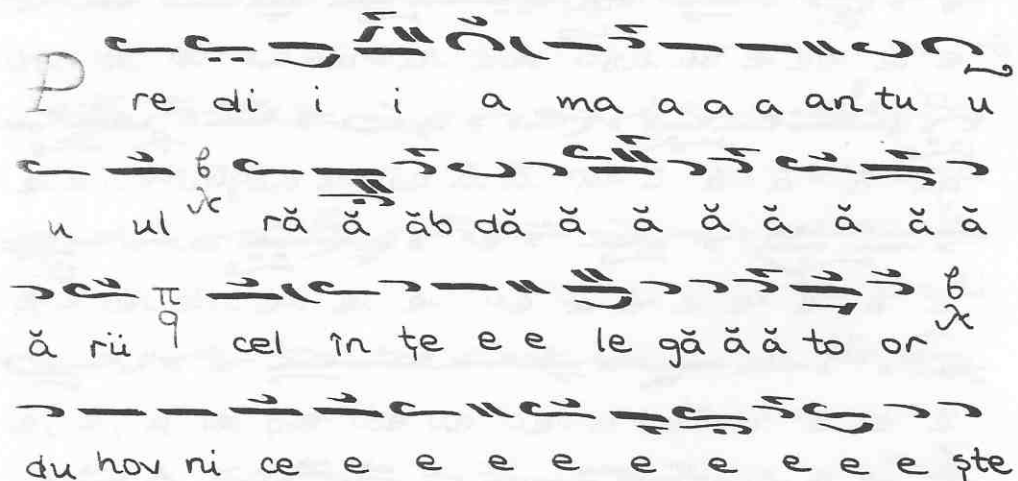 P re di i i a ma a a a an tu u
u ul ră ă ăb dă ă ă ă ă ă ă ă
ă rii π q cel în țe e e le gă ă ă to or
du hov ni ce e e e e e e e e e ște